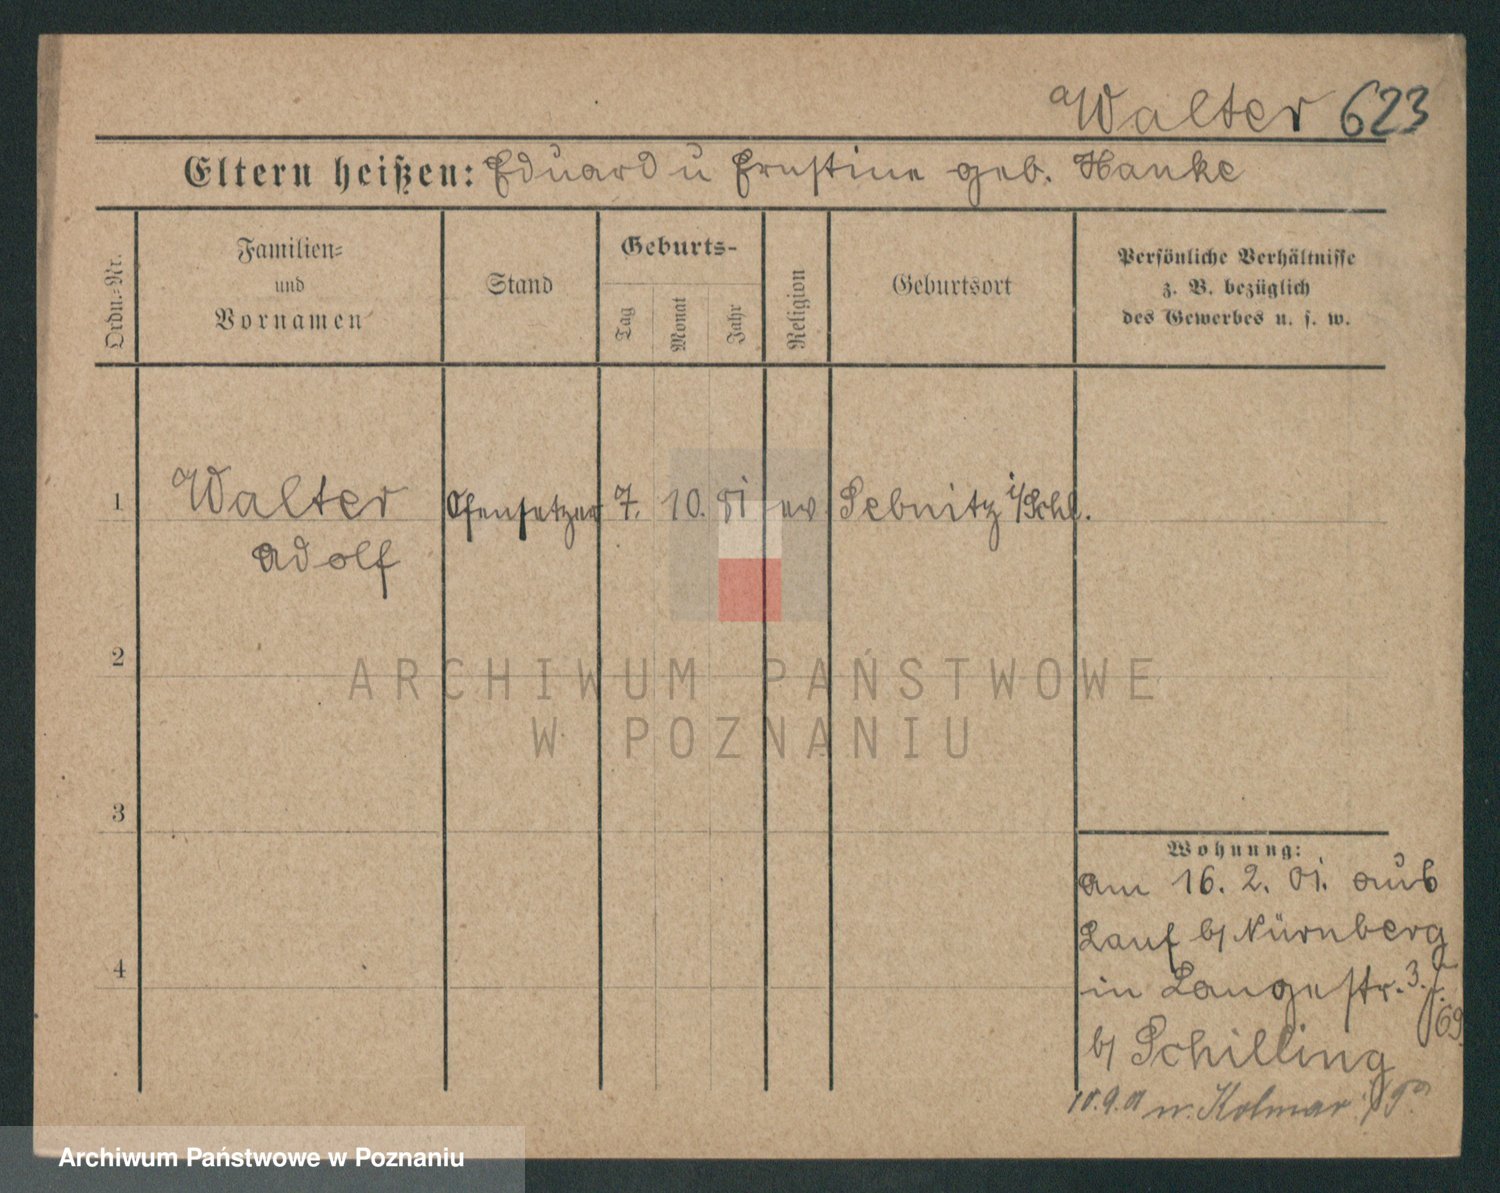 Walter 623
Eltern heißen: Eduard u Ernstine geb. Hanke
Ordn.=Nr.
Familien=
und
Vornamen
Stand
Geburts-
Tag
Monat
Jahr
Religion
Geburtsort
Persönliche Verhältnisse
z. B. bezüglich
des Gewerbes u. s. w.
1 Walter Ofensetzer 7. 10. 81 ev Sebnitz i/Schl.
Adolf
2
ARCHIWUM PAŃSTWOWE
W POZNANIU
3
Wohnung:
Am 16. 2. 01. aus
Lauf b/ Nürnberg
4
in Langestr. 3.
b/ Schilling
n. Kolmar i/P
Archiwum Państwowe w Poznaniu